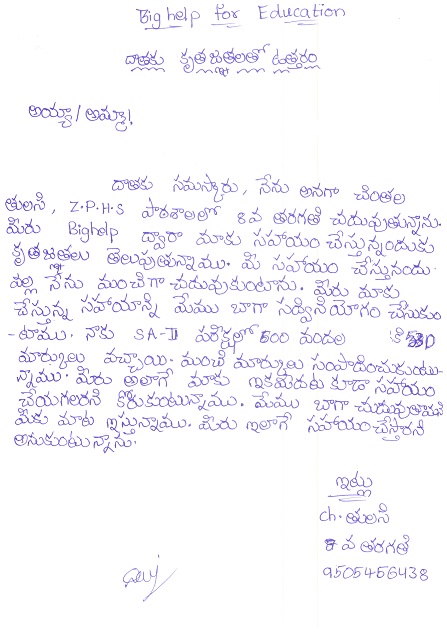 Bighelp for Education
దాతకు కృతజ్ఞతలతో ఉత్తరం
అయ్యా/అమ్మా!
దాతకు నమస్కారు, నేను అనగా చింతల
తులసి, Z.P.H.S పాఠశాలలో 8వ తరగతి చదువుతున్నాను.
మీరు Bighelp ద్వారా మాకు సహాయం చేస్తున్నందుకు
కృతజ్ఞతలు తెలుపుతున్నాము. మీ సహాయం చేస్తునందు-
వల్ల నేను మంచిగా చదువుకుంటాను. మీరు మాకు
చేస్తున్న సహాయాన్ని మేము బాగా సద్వినియోగం చేసుకుం
-టాము. నాకు SA-II పరిక్షల్లో 600 వందల కి
మార్కులు వచ్చాయి. మంచి మార్కులు సంపాదించుకుంటు-
న్నాము. మీరు అలాగే మాకు ఇకమెదట కూడా సహాయం
చేయగలరని కోరుకుంటున్నాము. మేము బాగా చదువుతామని
మీకు మాట ఇస్తున్నాము. మీరు ఇలాగే సహాయం చేస్తారని
అనుకుంటున్నాను.
ఇట్లు
ch. తులసి
8 వ తరగతి
9505456438